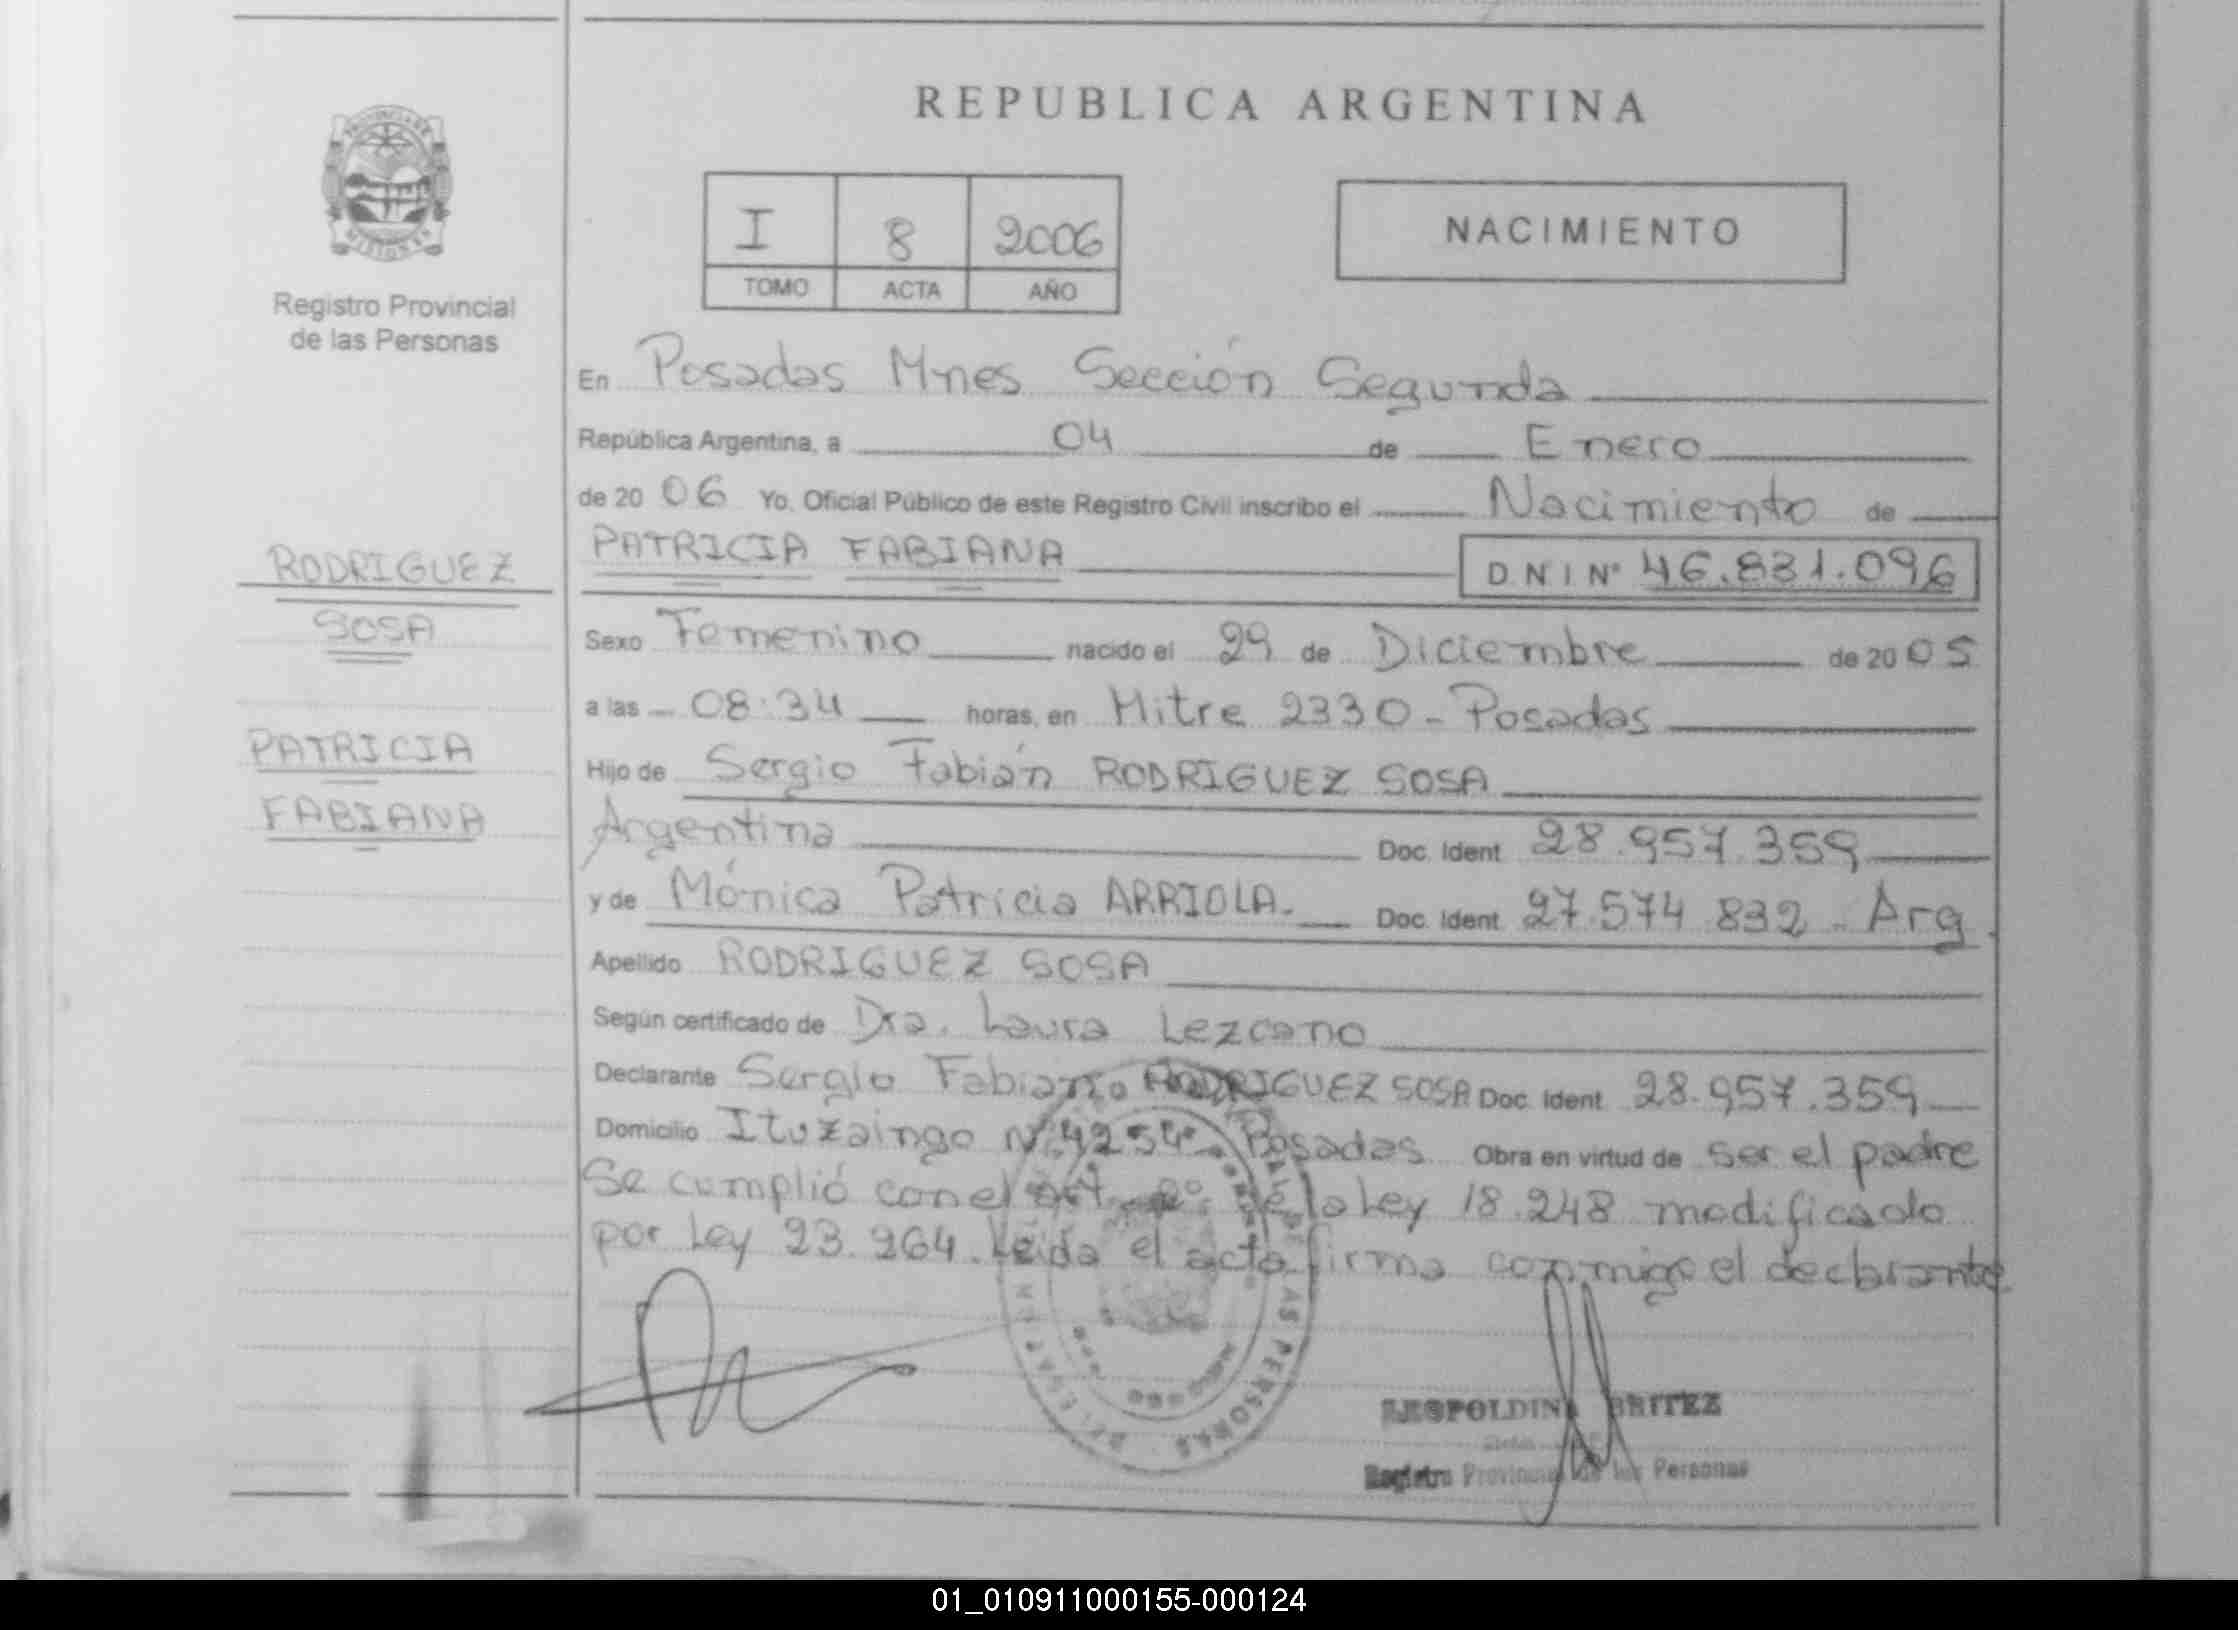 REPUBLICA ARGENTINA
I 8 2006
TOMO ACTA AÑO
NACIMIENTO
Registro Provincial
de las Personas
En Posadas Mnes Sección Segunda
República Argentina, a 04 de Enero
de 20 06 Yo. Oficial Público de este Registro Civil inscribo el Nacimiento de
PATRICIA FABIANA D N I Nº 46.831.096
RODRIGUEZ
SOSA
PATRICIA
FABIANA
Sexo Femenino nacido el 29 de Diciembre de 20 05
a las 08:34 horas, en Mitre 2330 - Posadas
Hijo de Sergio Fabián RODRIGUEZ SOSA
Argentina Doc. Ident. 28.957.359
y de Mónica Patricia ARRIOLA. Doc. Ident. 27.574.832 - Arg.
Apellido RODRIGUEZ SOSA
Según certificado de Dra. Laura Lezcano
Declarante Sergio Fabiano RODRIGUEZ SOSA Doc. Ident. 28.957.359
Domicilio Ituzaingo Nº 4254 Posadas Obra en virtud de ser el padre
Se cumplió con el art. 2º de la Ley 18.248 modificado
por Ley 23.264. Leida el acta firma conmigo el declarante
LEOPOLDINA BRITEZ
Registro Provincial de las Personas
01_010911000155-000124